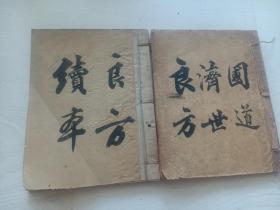 國道
濟世
良方
良方
續本